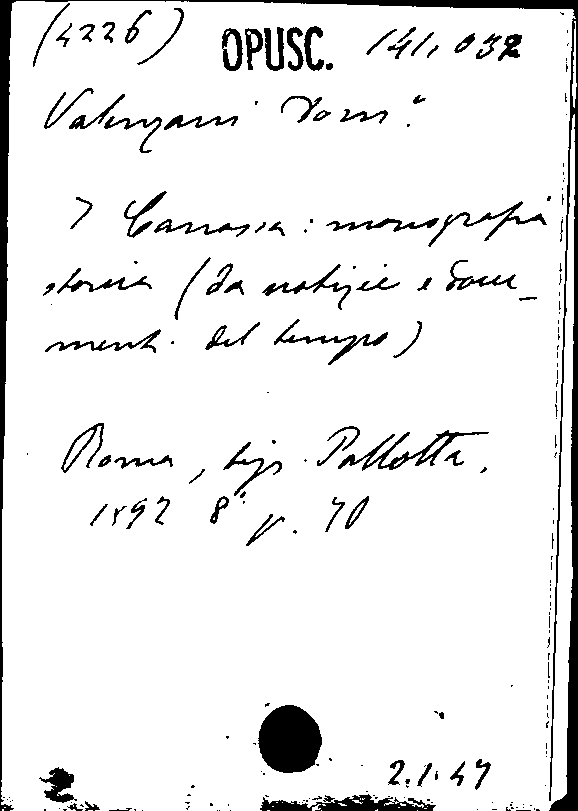 (4226) OPUSC. 141,032
Valenzani Dom.°
> Canossa : monografia
storica (da notizie e docu-
menti del tempo)
Roma, tip. Pallotta,
1892 8° p. 70
2.1.47